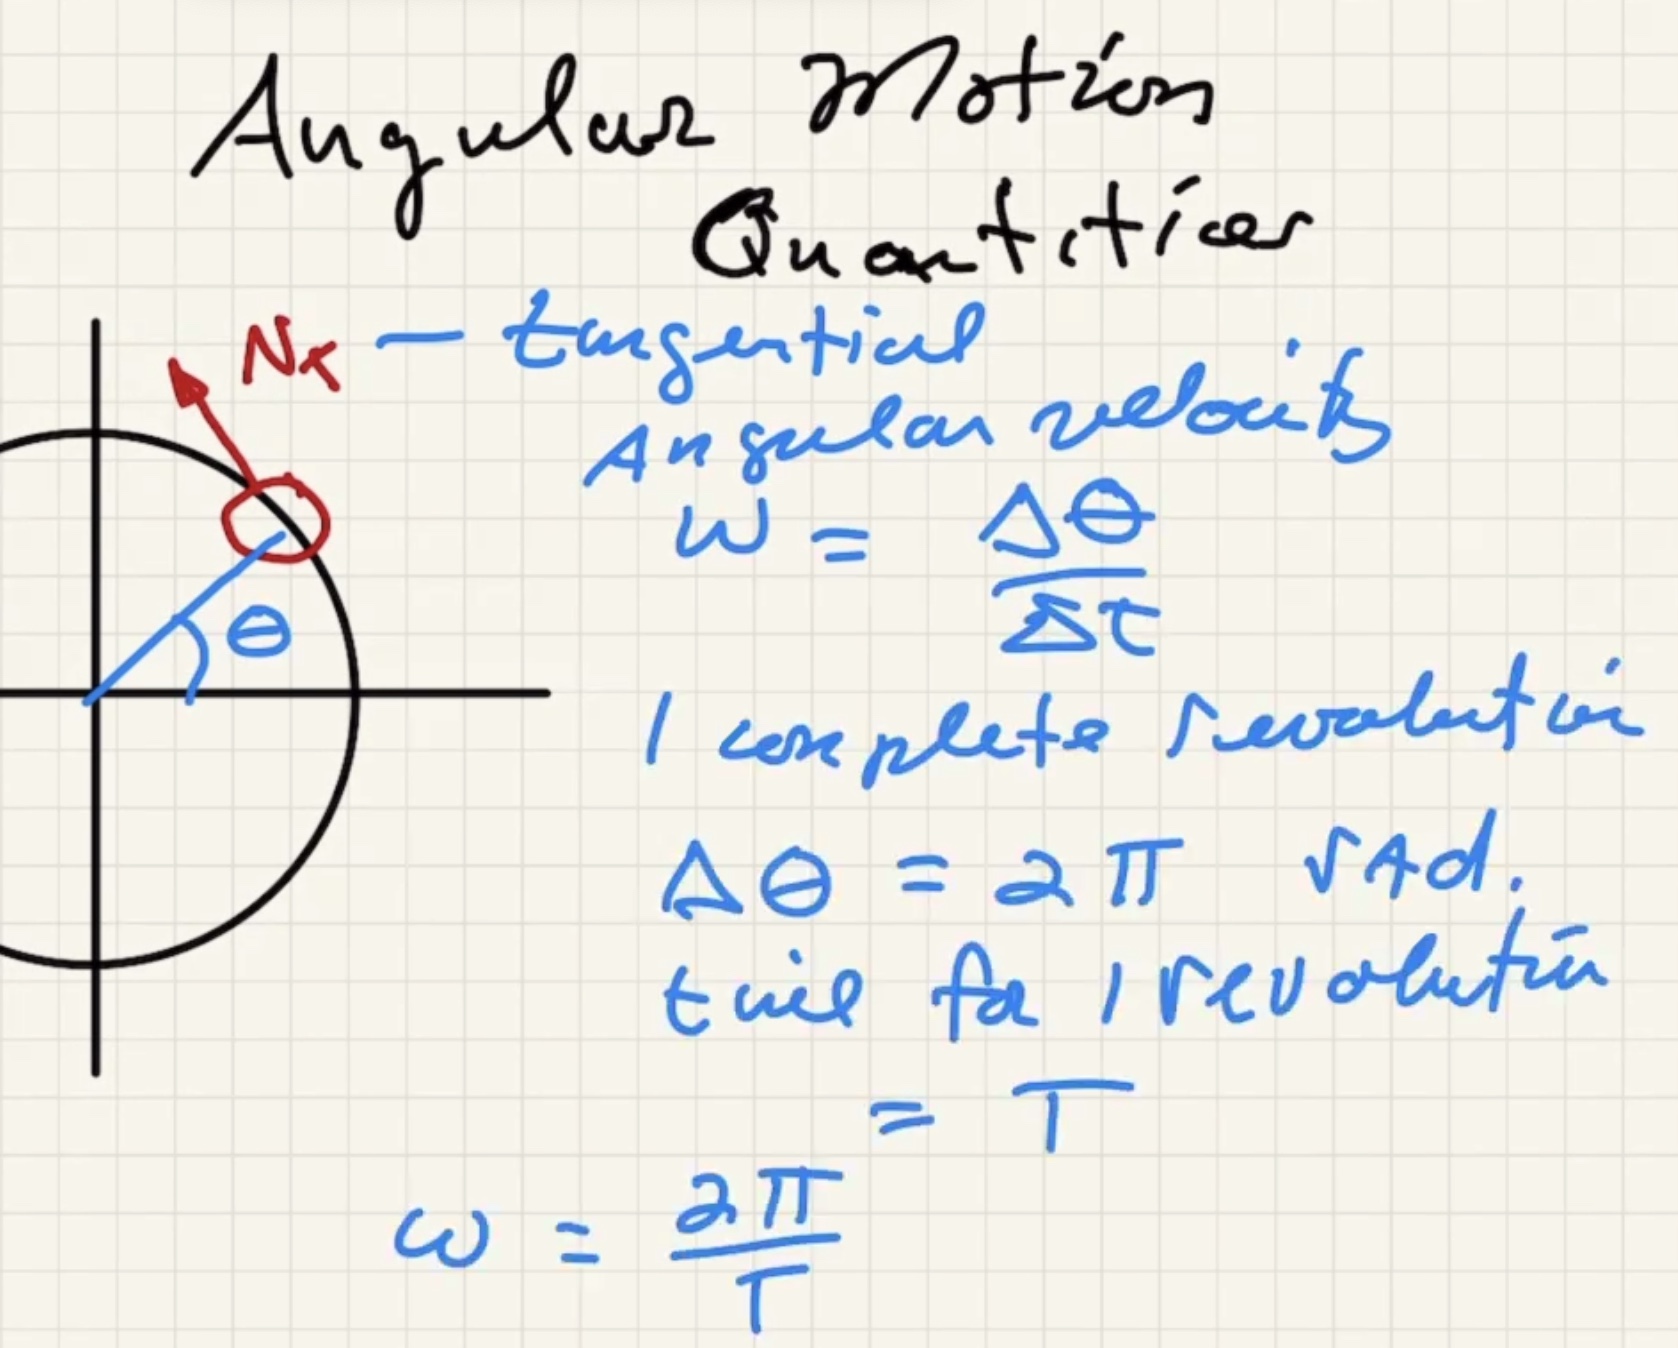 Angular Motion
Quantities
v_t — tangential
Angular velocity
ω = Δθ
Δt
θ
1 complete revolution
Δθ = 2π rad.
time for 1 revolution
= T
ω = 2π
T